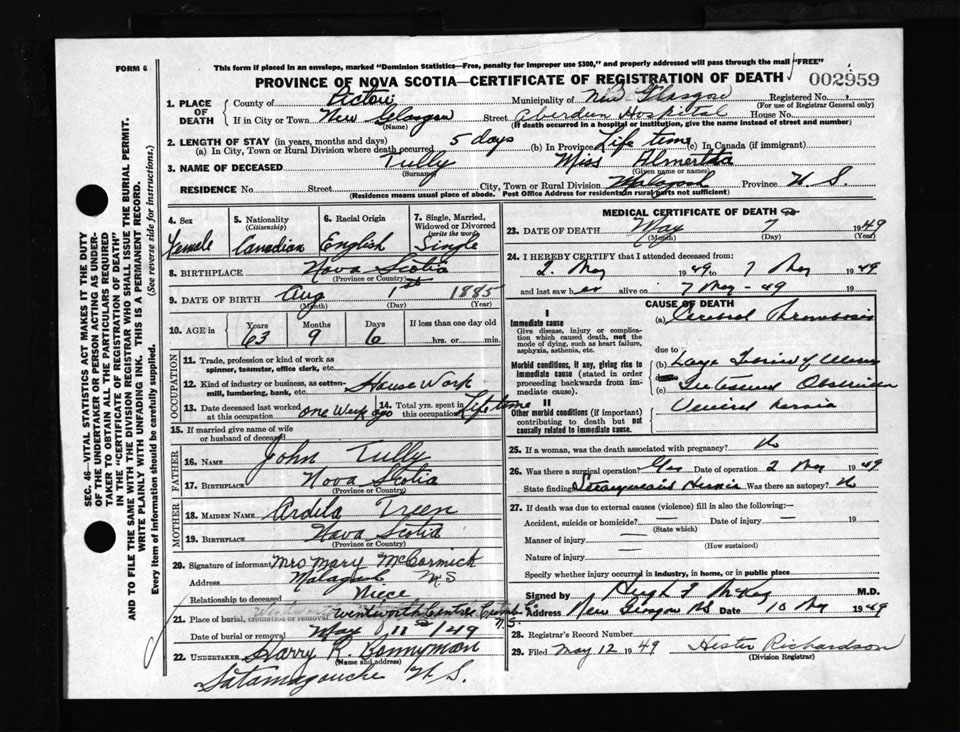 FORM 6
This form if placed in an envelope, marked "Dominion Statistics—Free, penalty for improper use $300," and properly addressed will pass through the mail "FREE"
PROVINCE OF NOVA SCOTIA—CERTIFICATE OF REGISTRATION OF DEATH
002959
1. PLACE OF DEATH
County of Pictou Municipality of New Glasgow Registered No.
(For use of Registrar General only)
If in City or Town New Glasgow Street Aberdeen Hospital House No.
(Name) (If death occurred in a hospital or institution, give the name instead of street and number)
2. LENGTH OF STAY (in years, months and days)
(a) In City, Town or Rural Division where death occurred 5 days (b) In Province Life time (c) In Canada (if immigrant)
3. NAME OF DECEASED Tully Miss Almertta
(Surname) (Given name or names)
RESIDENCE No. Street City, Town or Rural Division Malagash Province N. S.
(Residence means usual place of abode. Post Office Address for residents in rural parts not sufficient)
SEC. 46—VITAL STATISTICS ACT MAKES IT THE DUTY
OF THE UNDERTAKER OR PERSON ACTING AS UNDERTAKER TO OBTAIN ALL THE PARTICULARS REQUIRED
IN THE "CERTIFICATE OF REGISTRATION OF DEATH"
AND TO FILE THE SAME WITH THE DIVISION REGISTRAR WHO SHALL ISSUE THE BURIAL PERMIT.
WRITE PLAINLY WITH UNFADING INK. THIS IS A PERMANENT RECORD.
Every item of information should be carefully supplied. (See reverse side for instructions.)
4. Sex
Female
5. Nationality
(Citizenship)
Canadian
6. Racial Origin
English
7. Single, Married, Widowed or Divorced
(write the word)
Single
8. BIRTHPLACE Nova Scotia
(Province or Country)
9. DATE OF BIRTH Aug 1st 1885
(Month) (Day) (Year)
10. AGE in Years Months Days If less than one day old
63 9 6 hrs. or min.
OCCUPATION
11. Trade, profession or kind of work as spinner, teamster, office clerk, etc.
12. Kind of industry or business, as cotton-mill, lumbering, bank, etc. House Work
13. Date deceased last worked at this occupation one week ago
14. Total yrs. spent in this occupation Life time
15. If married give name of wife or husband of deceased
FATHER
16. NAME John Tully
17. BIRTHPLACE Nova Scotia
(Province or Country)
MOTHER
18. MAIDEN NAME Ardela Treen
19. BIRTHPLACE Nova Scotia
(Province or Country)
20. Signature of informant Mrs Mary McCormick
Address Malagash N S
Relationship to deceased Niece
21. Place of burial, cremation or removal Wentworth Centre N.S.
Date of burial or removal May 11th /49
22. UNDERTAKER Harry R. Bonnyman
(Name and address)
Tatamagouche N. S.
MEDICAL CERTIFICATE OF DEATH
23. DATE OF DEATH May 7 1949
(Month) (Day) (Year)
24. I HEREBY CERTIFY that I attended deceased from:
2. May 1949 to 7 May 1949
and last saw her alive on 7 May - 49 19
CAUSE OF DEATH
I
Immediate cause
Give disease, injury or complication which caused death, not the mode of dying, such as heart failure, asphyxia, asthenia, etc.
(a) Cerebral Thrombosis
due to
Morbid conditions, if any, giving rise to immediate cause (stated in order proceeding backwards from immediate cause).
(b)
due to
(c)
II
Other morbid conditions (if important) contributing to death but not causally related to immediate cause.
Ventral Hernia
25. If a woman, was the death associated with pregnancy? No
26. Was there a surgical operation? Yes Date of operation 2 May 1949
State finding Strangulated Hernia Was there an autopsy? No
27. If death was due to external causes (violence) fill in also the following:—
Accident, suicide or homicide? Date of injury — 19
(State which)
Manner of injury —
(How sustained)
Nature of injury —
Specify whether injury occurred in industry, in home, or in public place
Signed by Hugh F McKay M.D.
Address New Glasgow NS Date 10 May 1949
28. Registrar's Record Number
29. Filed May 12 1949 Hester Richardson
(Division Registrar)